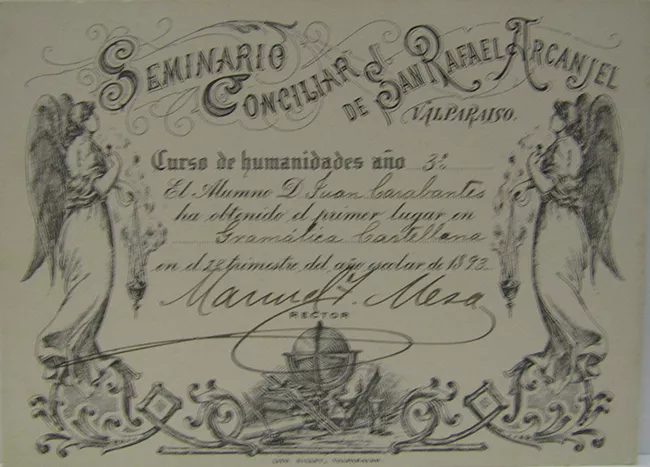 SEMINARIO
CONCILIAR
DE SAN RAFAEL ARCANJEL
VALPARAISO.
Curso de humanidades año 3º
El Alumno D. Juan Carabantes
ha obtenido el primer lugar en
Gramática Castellana
en el 2º trimestre del año escolar de 1893
Manuel T. Mesa
RECTOR